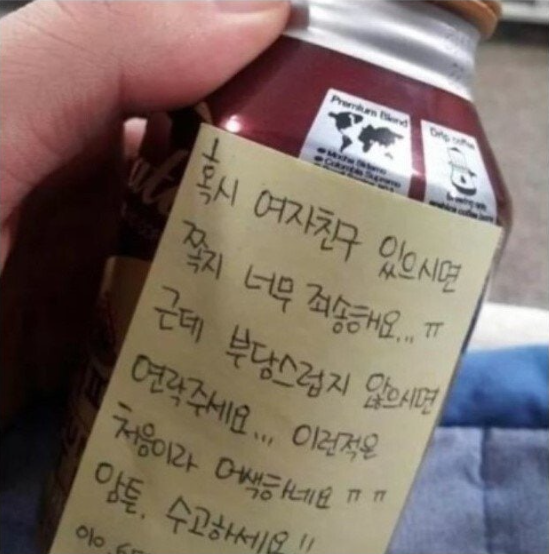 Premium Blend
Mocha Sidamo
Colombia Supremo
Drip coffee
혹시 여자친구 있으시면
쪽지 너무 죄송해요... ㅠ
근데 부담스럽지 않으시면
연락주세요... 이런적은
처음이라 어색하네요 ㅠㅠ
암튼, 수고하세요!!